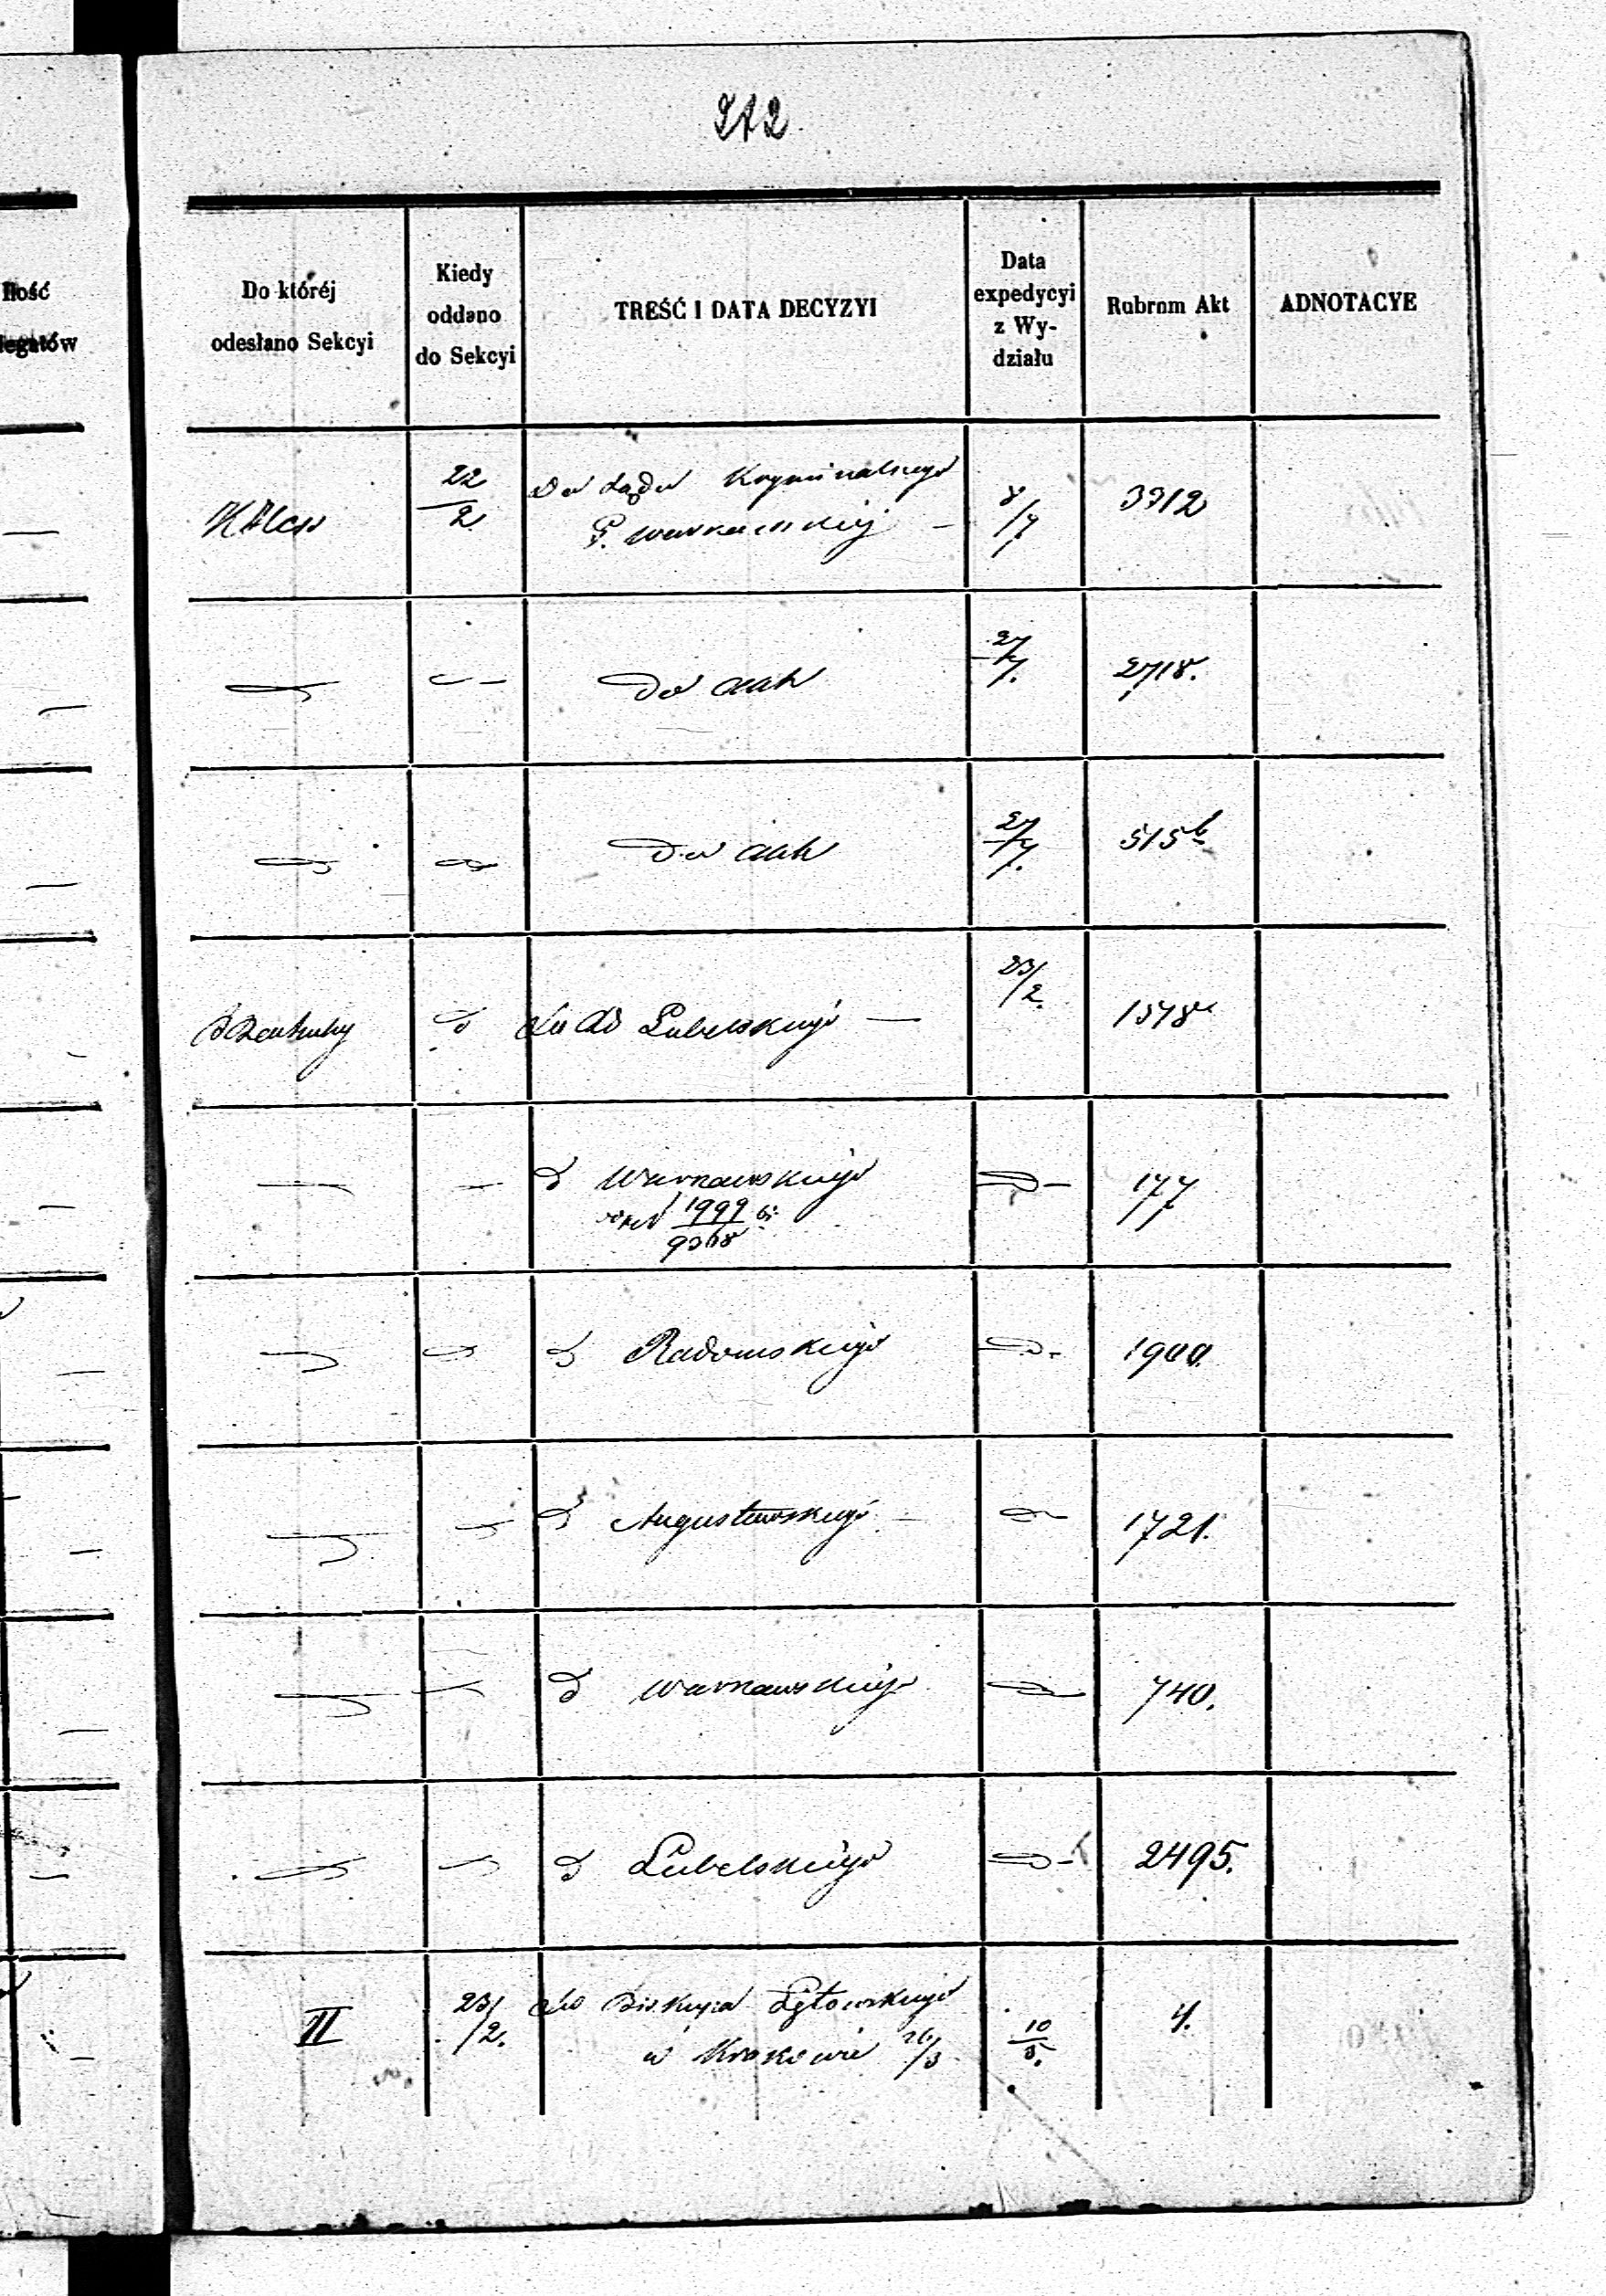 212
Ilość
legatów
Do któréj
odesłano Sekcyi
Kiedy
oddano
do Sekcyi
TREŚĆ I DATA DECYZYI
Data
expedycyi
z Wy-
działu
Rubrum Akt
ADNOTACYE
22
2
Do Sądu Kryminalnego
G. Warszawskiej —
8/4
3712
—
Do akt
27/4.
2718.
—
Do akt
27/4.
515 b
do RG Lubelskiego —
23/2.
1578
—
d Warszawskiego
1999
9368
177
—
d Radomskiego
1900.
—
d Augustowskiego —
1721.
—
d Warszawskiego
740.
—
d Lubelskiego
2495.
II
23/2.
do Biskupa Łętowskiego
w Krakowie 26/3
10
5.
4.